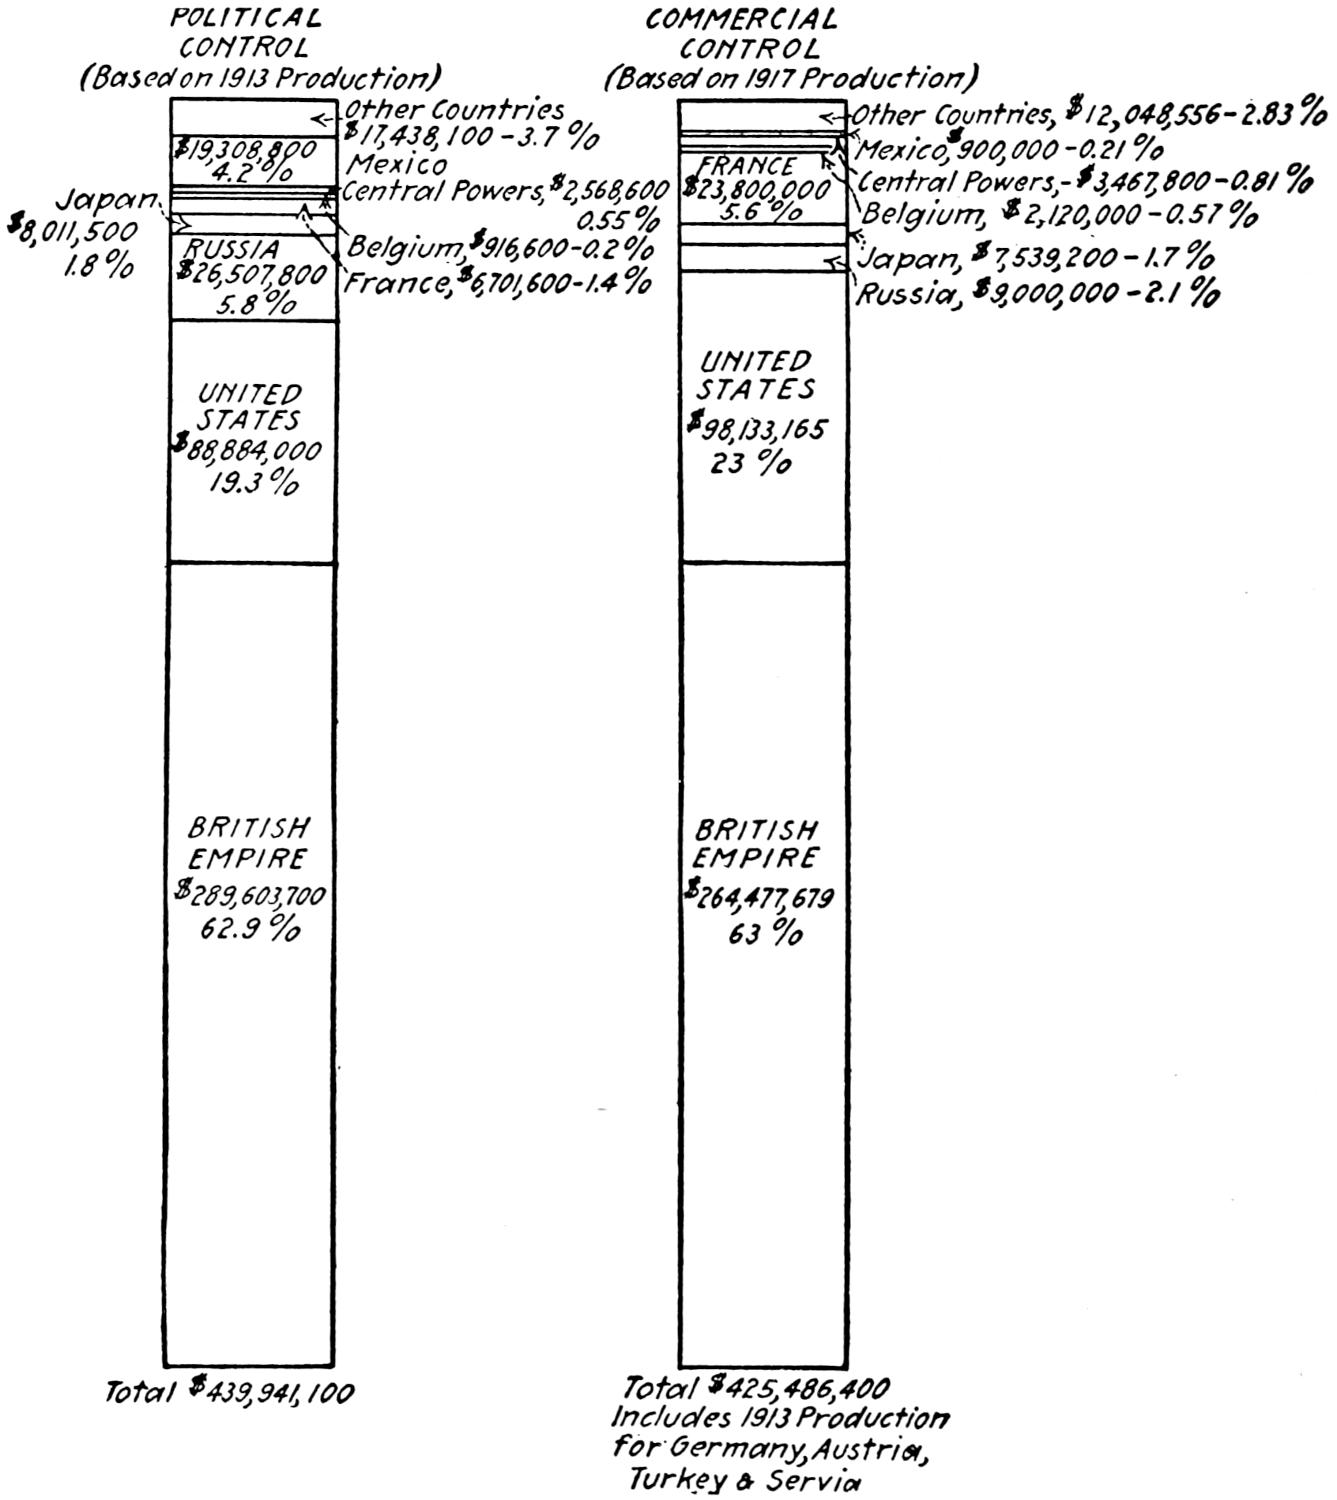 POLITICAL
CONTROL
(Based on 1913 Production)
Other Countries
$17,438,100-3.7%
$19,308,800
4.2%
Mexico
Central Powers, $2,568,600
0.55%
Japan
$8,011,500
1.8%
Belgium, $916,600-0.2%
France, $6,701,600-1.4%
RUSSIA
$26,507,800
5.8%
UNITED
STATES
$88,884,000
19.3%
BRITISH
EMPIRE
$289,603,700
62.9%
Total $439,941,100
COMMERCIAL
CONTROL
(Based on 1917 Production)
Other Countries, $12,048,556-2.83%
Mexico, $900,000-0.21%
Central Powers,-$3,467,800-0.81%
Belgium, $2,120,000-0.57%
FRANCE
$23,800,000
5.6%
Japan, $7,539,200-1.7%
Russia, $9,000,000-2.1%
UNITED
STATES
$98,133,165
23%
BRITISH
EMPIRE
$264,477,679
63%
Total $425,486,400
Includes 1913 Production
for Germany, Austria,
Turkey & Servia